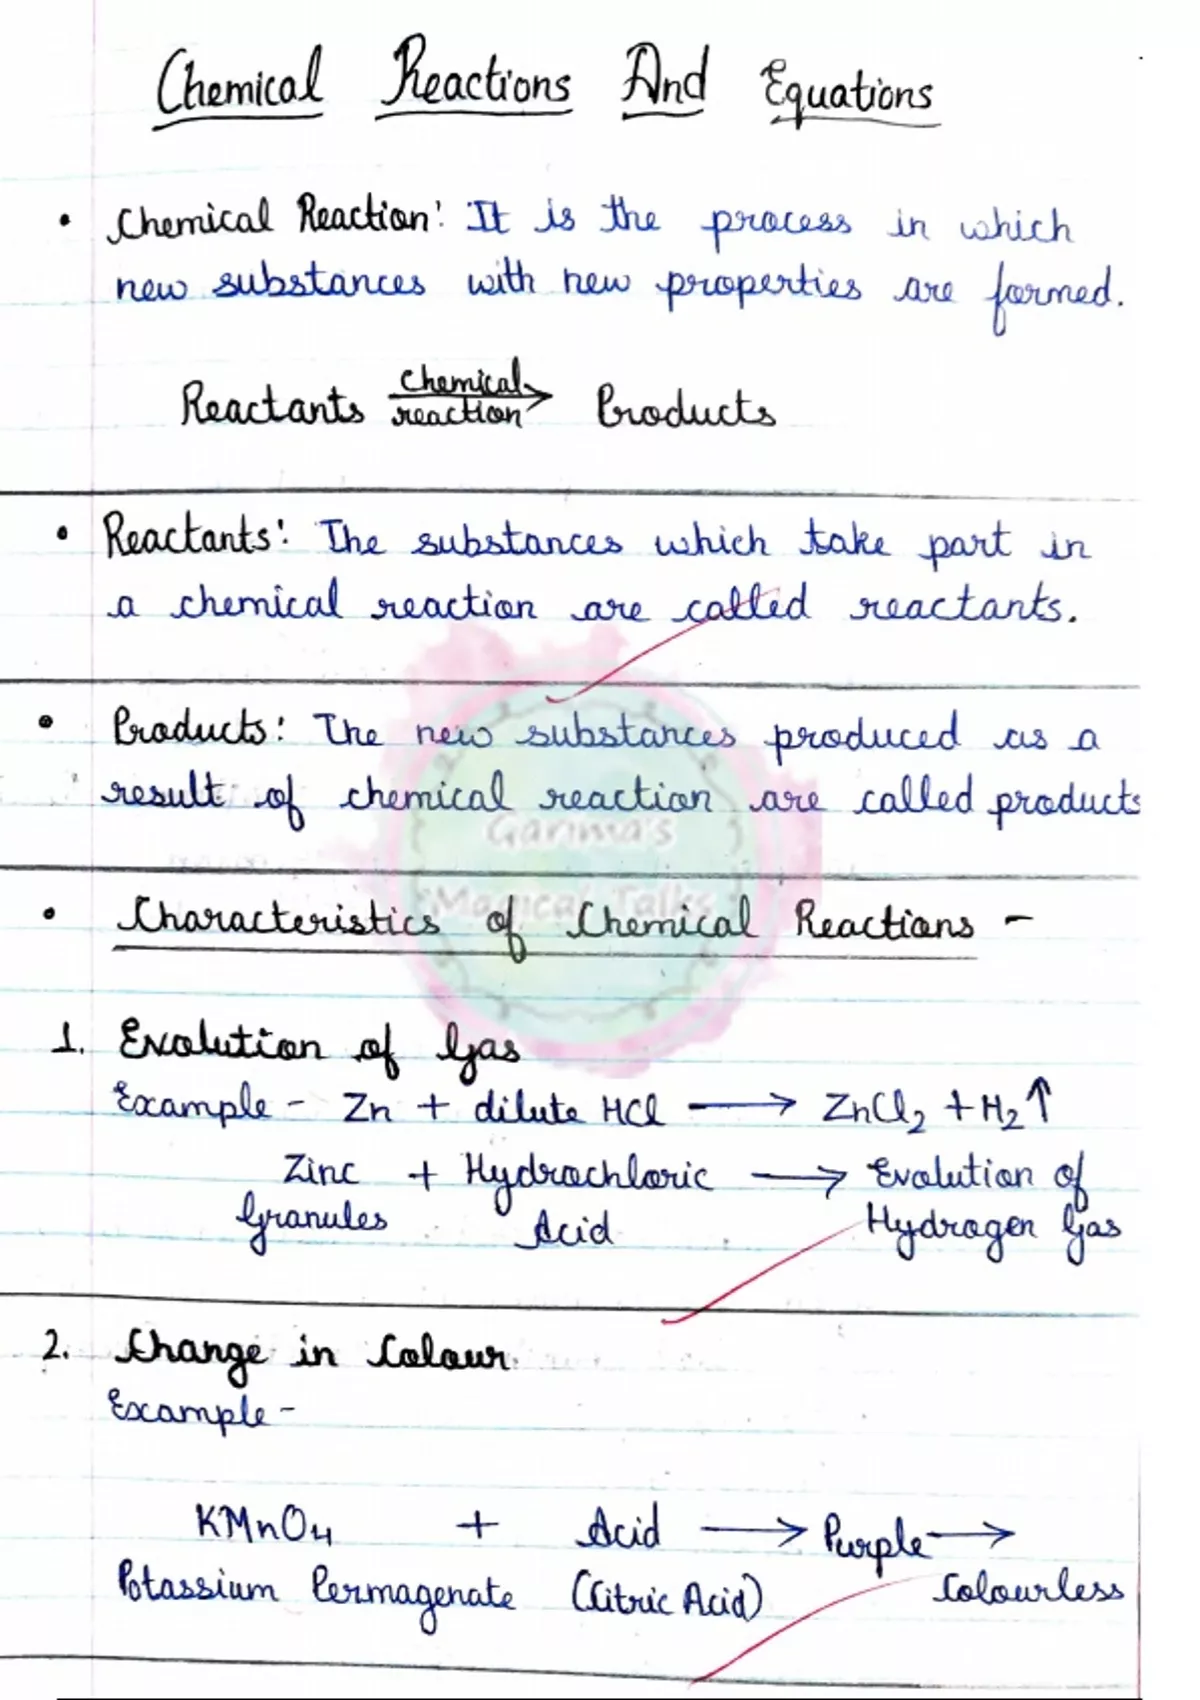 Chemical Reactions And Equations
• Chemical Reaction: It is the process in which
new substances with new properties are formed.
Reactants chemical reaction → Products
• Reactants: The substances which take part in
a chemical reaction are called reactants.
• Products: The new substances produced as a
result of chemical reaction are called products
Garima's
Magical Talks
• Characteristics of Chemical Reactions -
1. Evolution of Gas
Example - Zn + dilute HCl → ZnCl₂ + H₂↑
Zinc + Hydrochloric → Evolution of
Granules Acid Hydrogen Gas
2. Change in Colour.
Example -
KMnO₄ + Acid → Purple →
Potassium Permagenate (Citric Acid) Colourless